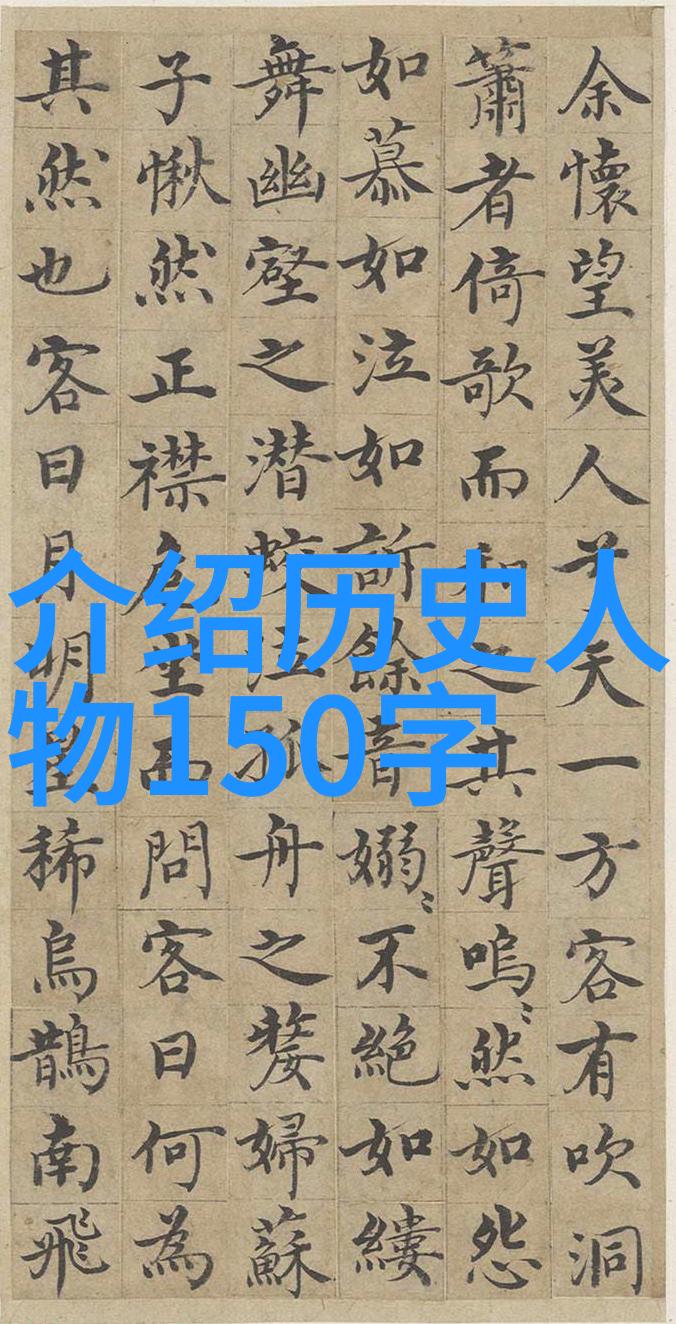 余懷望美人兮天一方客有吹洞
簫者倚歌而和之其聲嗚〻然如怨
如慕如泣如訴餘音嫋〻不絕如縷
舞幽壑之潜蛟泣孤舟之嫠婦蘇
子愀然正襟危坐而問客曰何為
其然也客曰月明星稀烏鵲南飛
介绍历史人
物150字